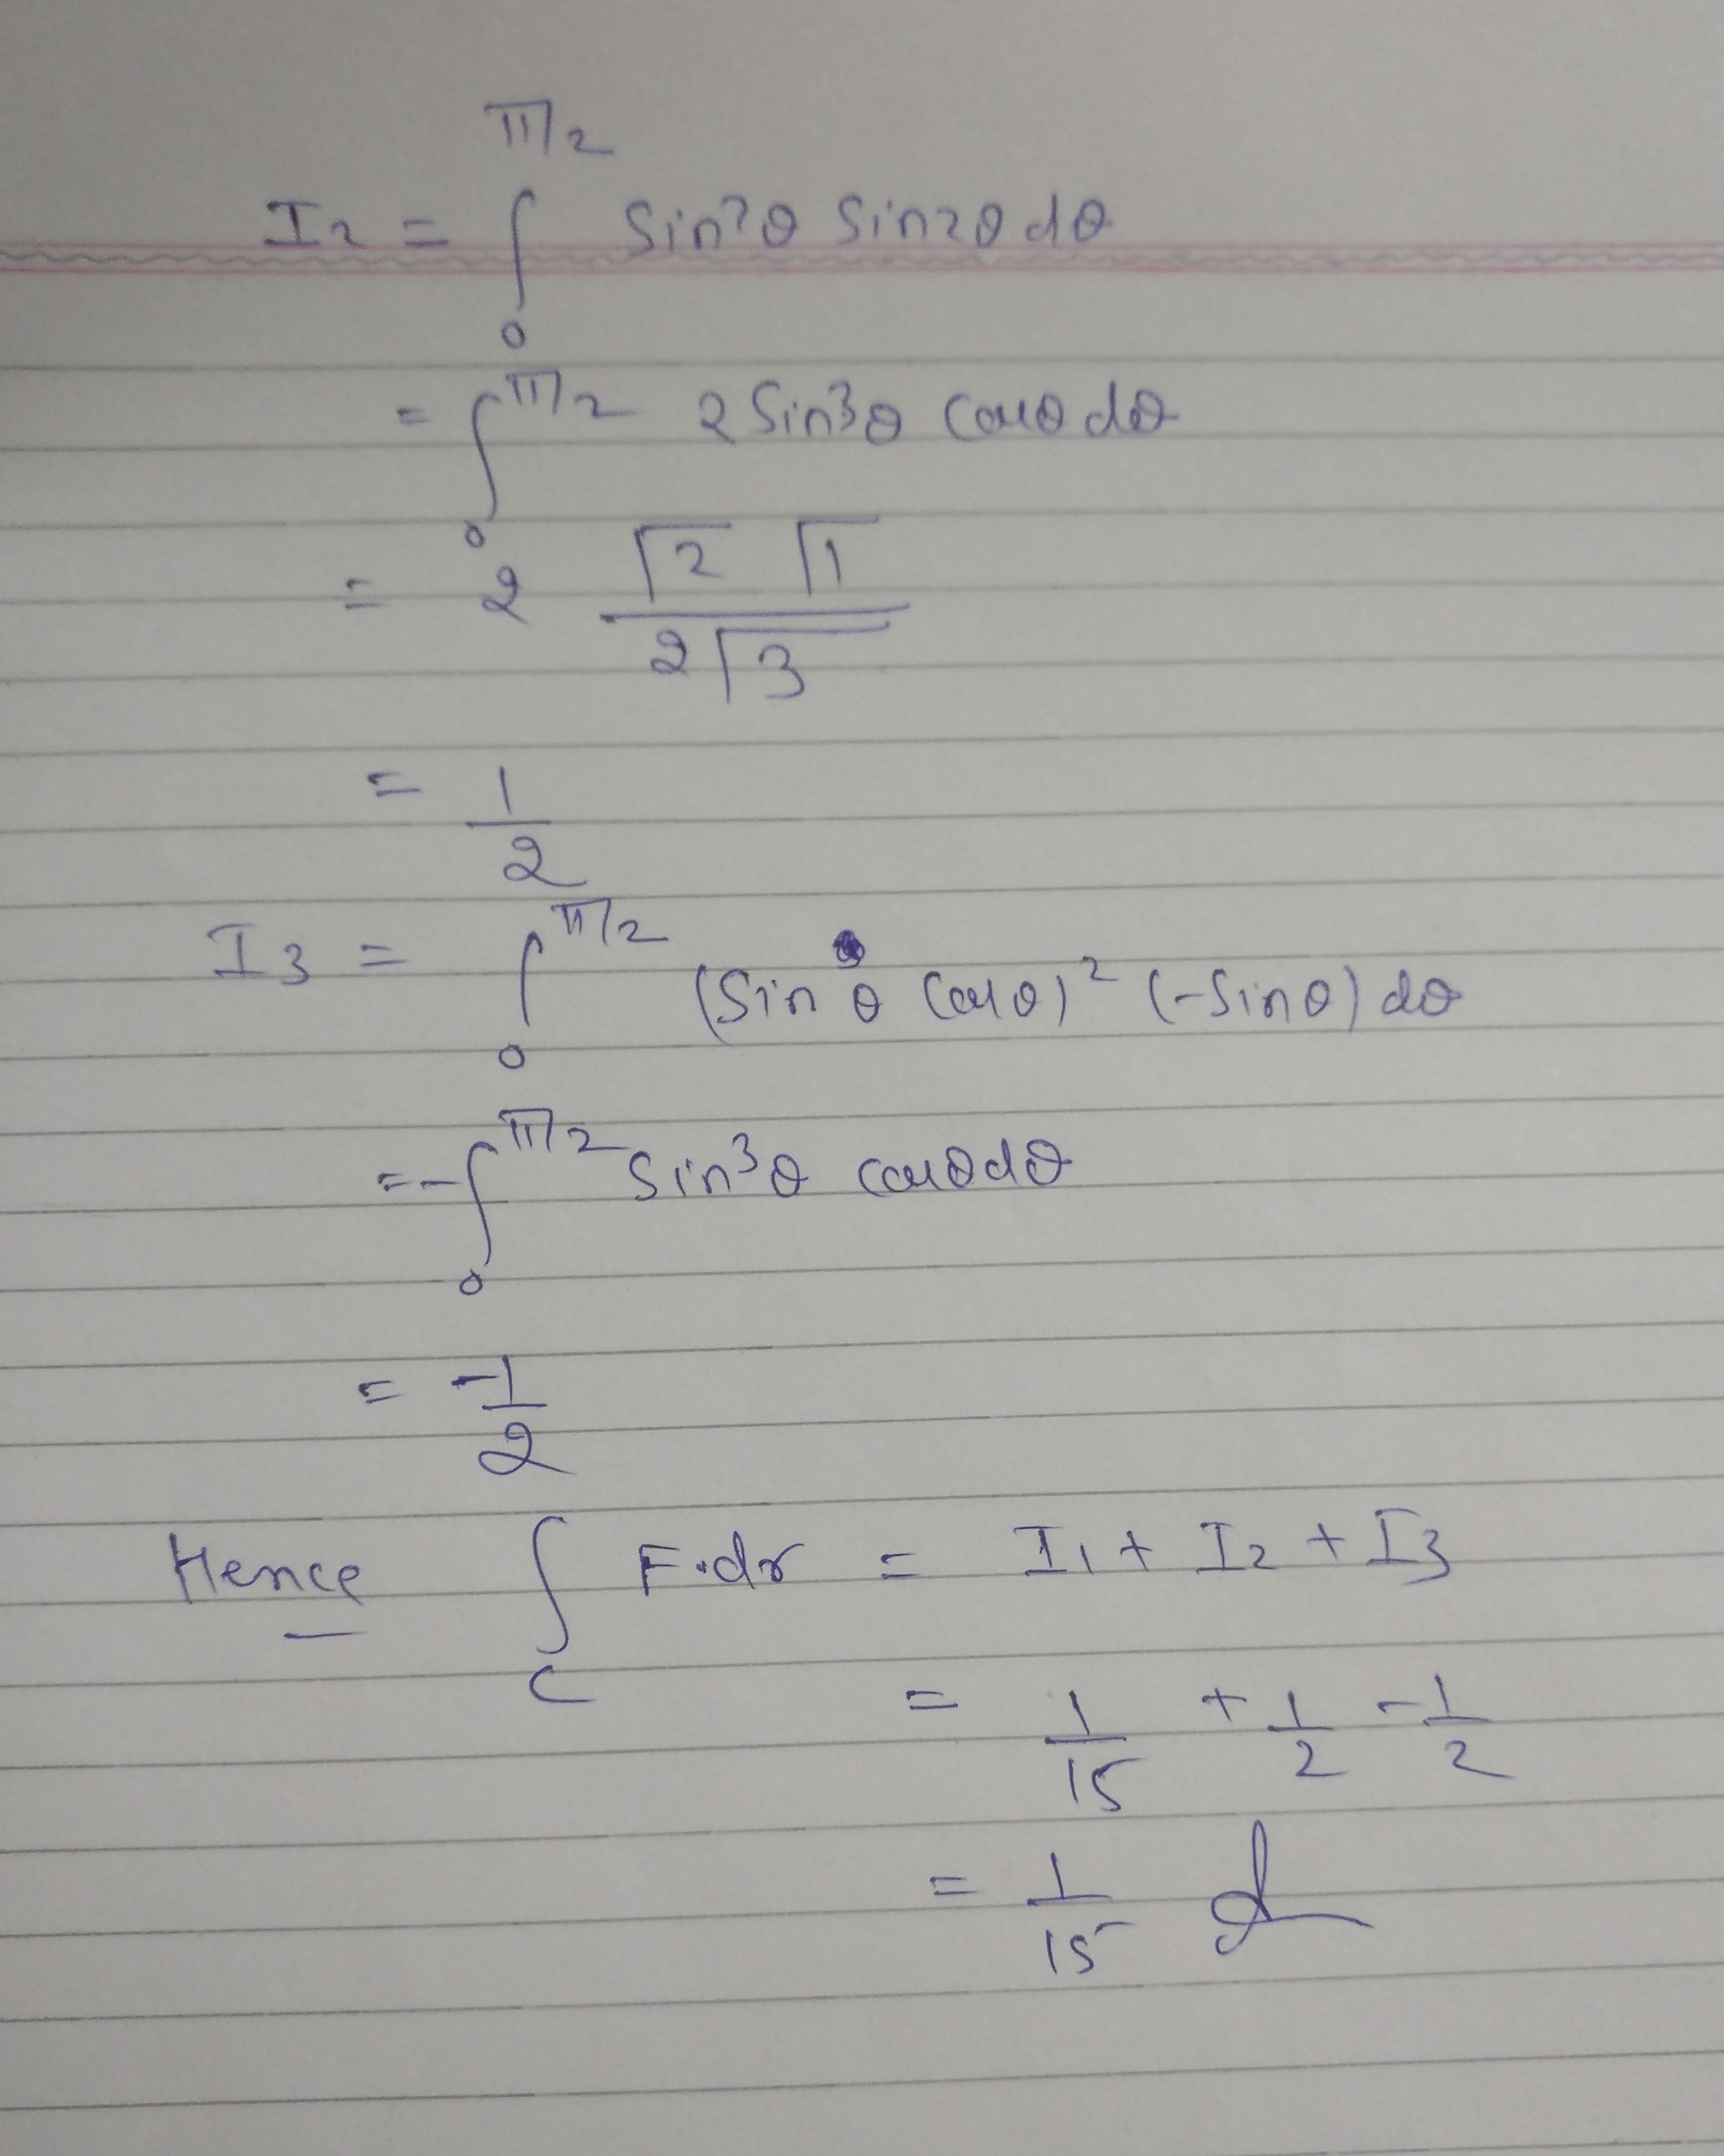 I2 = ∫_0^{π/2} Sin²θ Sin2θ dθ
= ∫_0^{π/2} 2 Sin³θ Cosθ dθ
= 2 (Γ2 Γ1)/(2Γ3)
= 1/2
I3 = ∫_0^{π/2} (Sin θ Cosθ)² (-Sinθ) dθ
= -∫_0^{π/2} Sin³θ Cosθ dθ
= -1/2
Hence ∫_C F·dr = I1 + I2 + I3
= 1/15 + 1/2 - 1/2
= 1/15